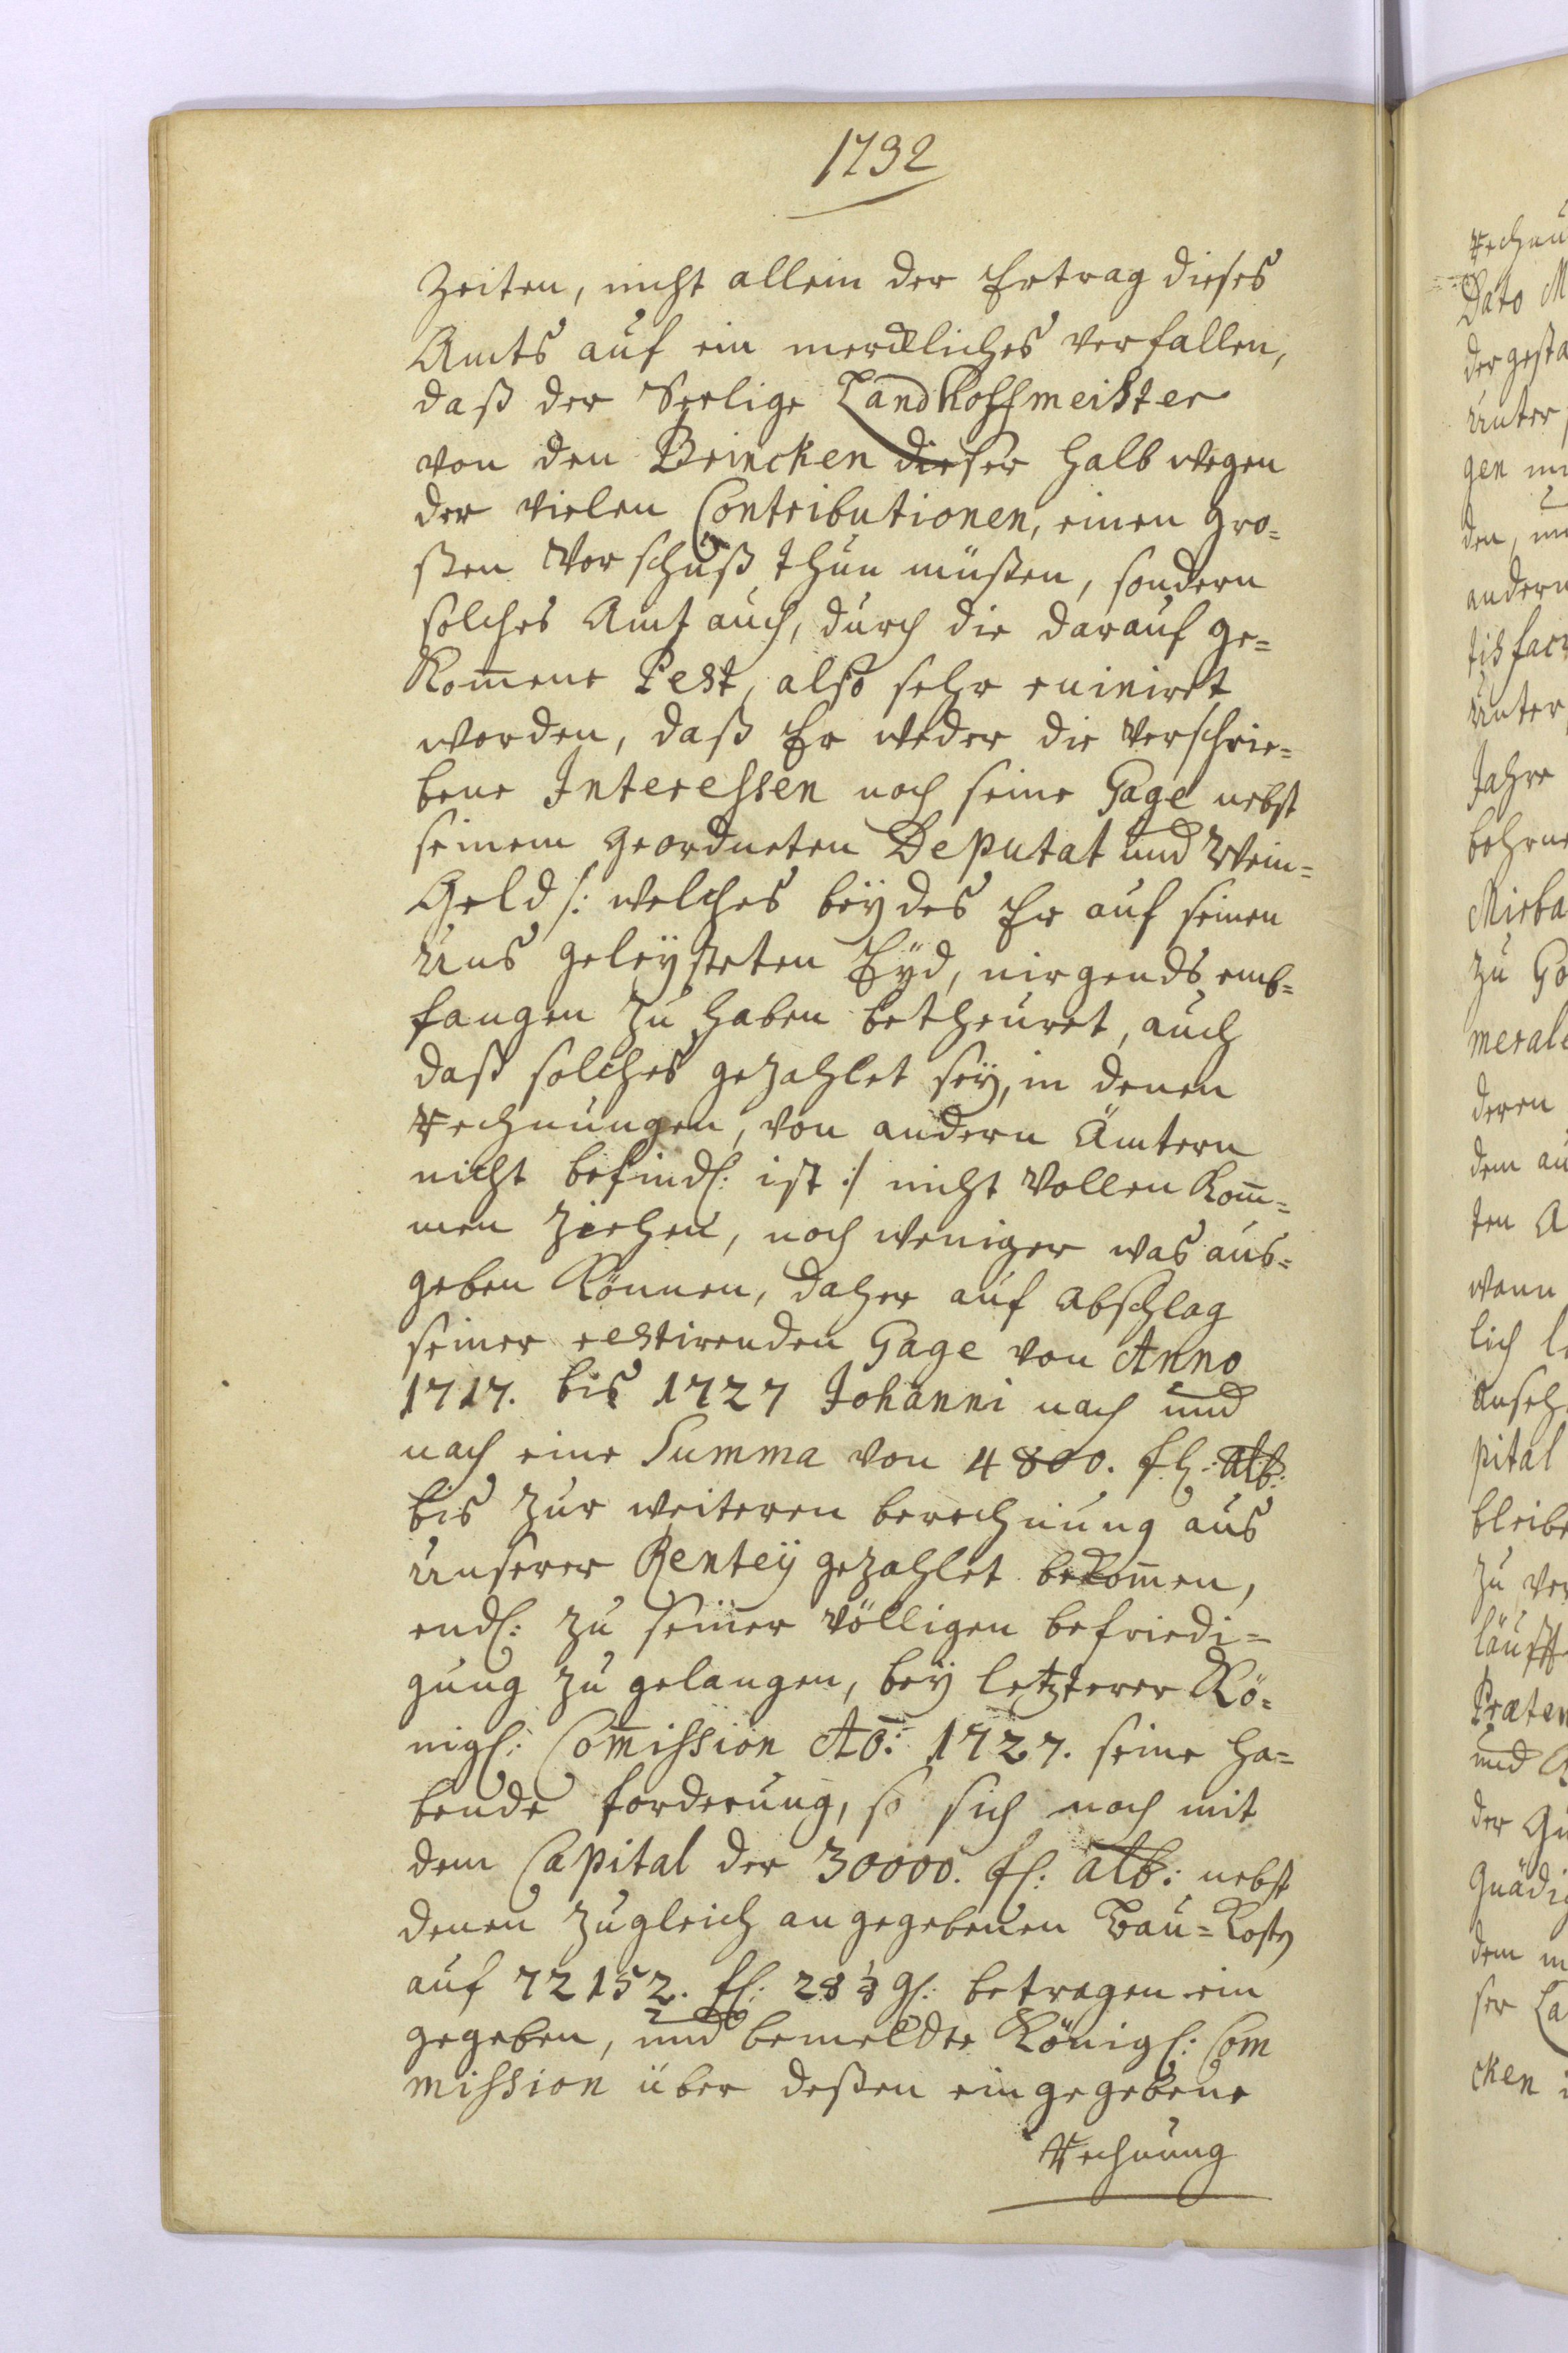 1732
Zeiten, nicht allein der Ertrag dieses
Amts auf ein merckliches verfallen,
daß der Seelige Landhoffmeister
von den Brincken dieser halb wegen
der vielen Contributionen, einen gro=
ßen Vorschuß thun müßen, sondern
solches Amt auch, durch die darauf ge=
kom̅ene Pest, also sehr ruiniret
worden, daß Er weder die verschrie=
bene Interessen noch seine Gage nebst
seinem geordneten Deputat und Wein=
Geld /: welches beydes Er auf seinen
Uns geleysteten Eyd, nirgends emb=
fangen zu haben betheuret, auch
daß solches gezahlet sey, in denen
Rechnungen, von andern Ämtern
nicht befindl: ist :/ nicht Vollen kom̅=
men ziehen, noch weniger was aus=
geben können, daher auf abschlag
seiner restirenden Gage von Anno
1717. bis 1727 Johanni nach und
nach eine Summa von 4800. fl: alb:
bis zur weiteren berechnung aus
Unserer Rentey gezahlet bekom̅en,
endl: zu seiner völligen befriedi=
gung zu gelangen, bey letzterer Kö=
nigl: Com̅ission Ao: 1727. seine ha=
bende forderung, so sich noch mit
dem Capital der 30000. fl: alb: nebst
denen zugleich angegebenen Bau=Kosten
auf 72152. fl: 28 1/3 gl: betragen ein
gegeben, und bemeldte Königl: Com
mission über deßen eingegebene
Rechnung
Dato M
der gesta
Unter
gen
den,
andern
tisfac
Unter
Jahre
Mirba
zu Go
meral
deren
dem au
ten A
wann
lich
anseh
pital
bleibe
zu ver
läufft
Præten
und
der
Gnädi
dem
ser La
cken